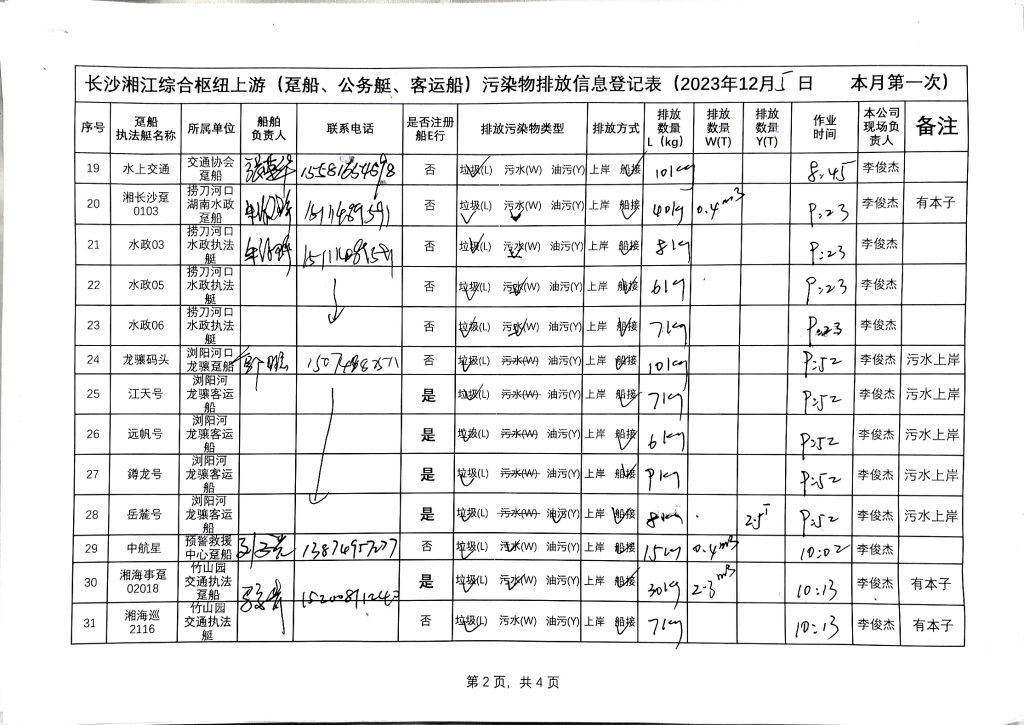 长沙湘江综合枢纽上游（趸船、公务艇、客运船）污染物排放信息登记表（2023年12月5日 本月第一次）
序号 趸船执法艇名称 所属单位 船舶负责人 联系电话 是否注册船E行 排放污染物类型 排放方式 排放数量L（kg） 排放数量W(T) 排放数量Y(T) 作业时间 本公司现场负责人 备注
19 水上交通 交通协会趸船 否 垃圾(L) 污水(W) 油污(Y) 上岸 船接 10kg 8:45 李俊杰
20 湘长沙趸0103 捞刀河口湖南水政趸船 15111489591 否 垃圾(L) 污水(W) 油污(Y) 上岸 船接 40kg 0.4m3 9:23 李俊杰 有本子
21 水政03 捞刀河口水政执法艇 15111489591 否 垃圾(L) 污水(W) 油污(Y) 上岸 船接 8kg 9:23 李俊杰
22 水政05 捞刀河口水政执法艇 否 垃圾(L) 污水(W) 油污(Y) 上岸 船接 6kg 9:23 李俊杰
23 水政06 捞刀河口水政执法艇 否 垃圾(L) 污水(W) 油污(Y) 上岸 船接 7kg 9:23 李俊杰
24 龙骧码头 浏阳河口龙骧趸船 否 垃圾(L) 污水(W) 油污(Y) 上岸 船接 10kg 9:52 李俊杰 污水上岸
25 江天号 浏阳河龙骧客运船 是 垃圾(L) 污水(W) 油污(Y) 上岸 船接 7kg 9:52 李俊杰 污水上岸
26 远帆号 浏阳河龙骧客运船 是 垃圾(L) 污水(W) 油污(Y) 上岸 船接 6kg 9:52 李俊杰 污水上岸
27 鐏龙号 浏阳河龙骧客运船 是 垃圾(L) 污水(W) 油污(Y) 上岸 船接 9kg 9:52 李俊杰 污水上岸
28 岳麓号 浏阳河龙骧客运船 是 垃圾(L) 污水(W) 油污(Y) 上岸 船接 8kg 2.5T 9:52 李俊杰 污水上岸
29 中航星 预警救援中心趸船 13874957277 否 垃圾(L) 污水(W) 油污(Y) 上岸 船接 15kg 0.4m3 10:02 李俊杰
30 湘海事趸02018 竹山园交通执法趸船 是 垃圾(L) 污水(W) 油污(Y) 上岸 船接 30kg 2.3m3 10:13 李俊杰 有本子
31 湘海巡2116 竹山园交通执法艇 否 垃圾(L) 污水(W) 油污(Y) 上岸 船接 7kg 10:13 李俊杰 有本子
第 2 页，共 4 页